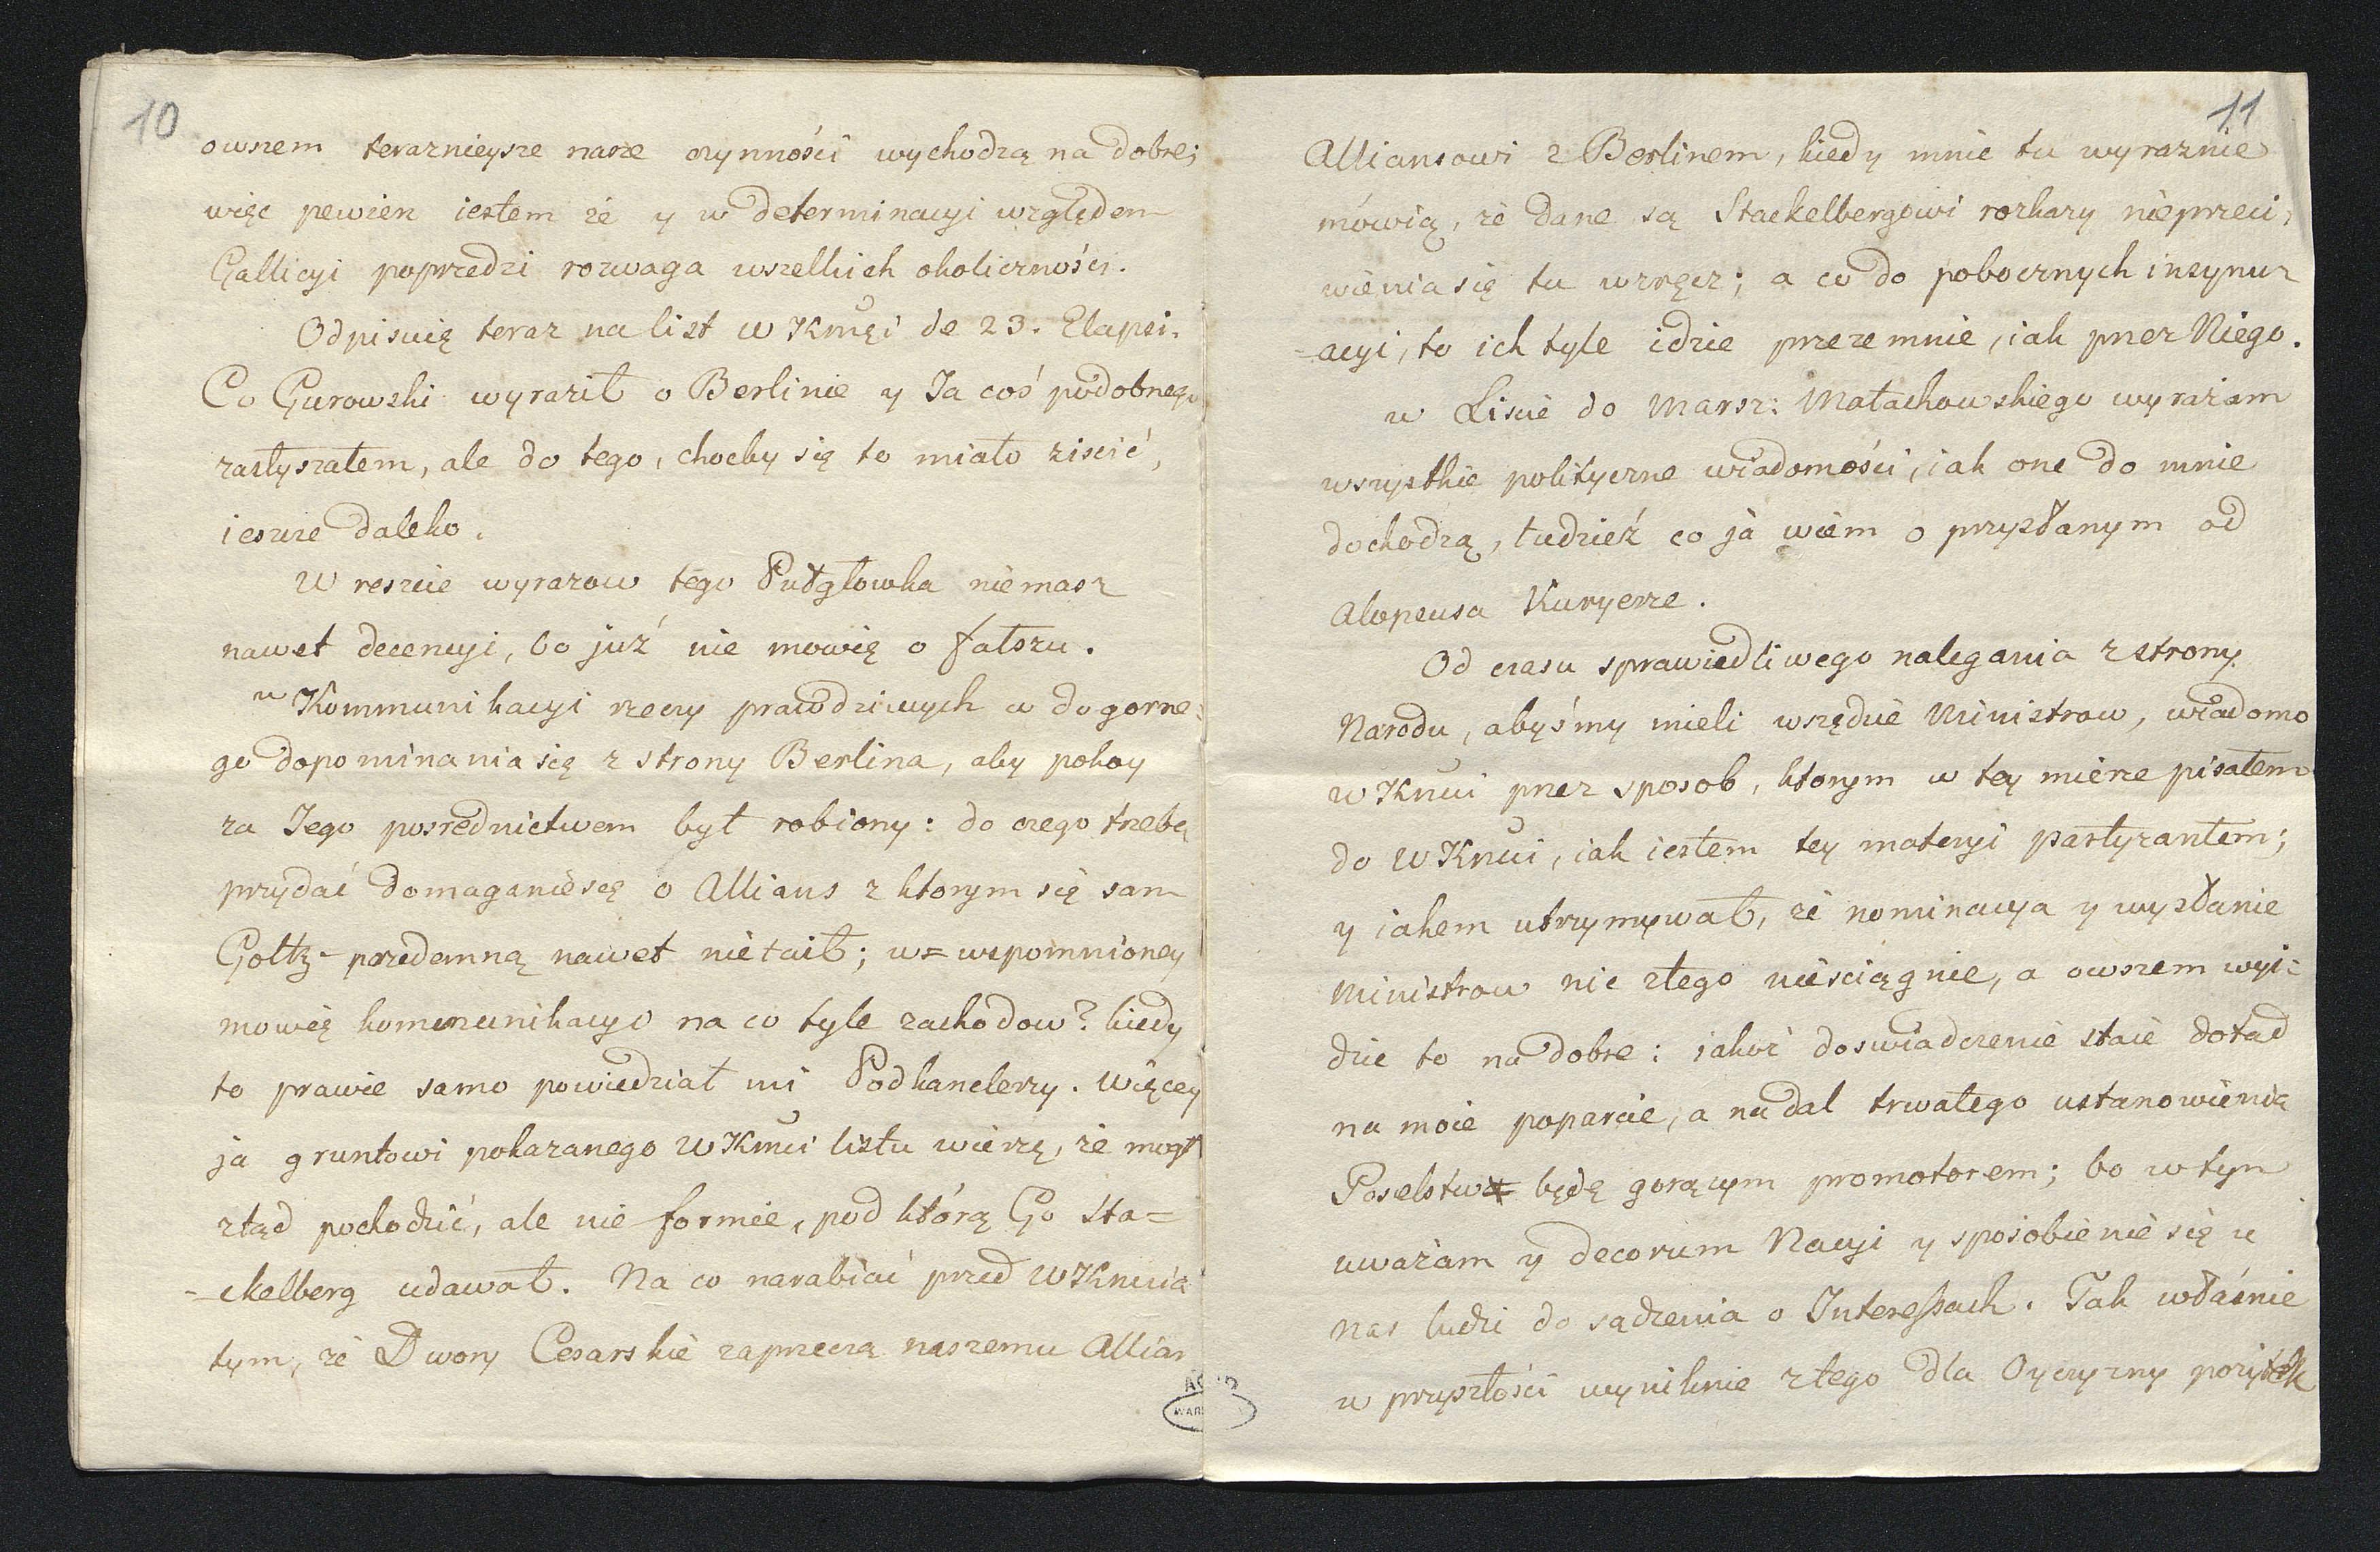 10
owszem teraznieysze nasze czynności wychodzą na dobre;
więc pewien iestem że y w determinacyi względem
Gallicyi poprzedzi rozwaga wszelkich okoliczności.
Odpisuię teraz na list W Kmći de 23. Elapsi.
Co Gurowski wyraził o Berlinie y Ja coś podobnego
zasłyszałem, ale do tego, choćby się to miało ziscić,
ieszcze daleko.
W reszcie wyrazow tego Pułgłowka nie masz
nawet decencyi, bo już nie mowię o fałszu.
w Kommunikacyi rzeczy prawdziwych co do gorne=
go dopominania się z strony Berlina, aby pokoy
za Jego posrednictwem był robiony: do czego trzeba
przydać domaganie się o Allians z ktorym się sam
Goltz przedemną nawet nie taił; w= wspomnioney
mowię kommunikacyi na co tyle zachodow? kiedy
to prawie samo powiedział mi Podkanclerzy. Więcey
ja gruntowi pokazanego WKmći listu wierzę, że mogł
ztąd pochodzić, ale nie formie, pod którą Go Sta=
=ckelberg udawał. Na co narabiać przed WKmcią
tym, że Dwory Cesarskie zaprzeczą naszemu Allian
11
Alliansowi z Berlinem, kiedy mnie tu wyraznie
mówią, że dane są Stackelbergowi rozkazy nieprzeci=
wienia się tu wręcz; a co do pobocznych insynu=
=acyi, to ich tyle idzie przezemnie, iak przez Niego.
w Liscie do Marsz: Małachowskiego wyrażam
wszystkie polityczne wiadomości, iak one do mnie
dochodzą, tudzież co ja wiem o przysłanym od
Alopeusa Kuryerze.
Od czasu sprawiedliwego nalegania z strony
Narodu, abyśmy mieli wszędzie Ministrow, wiadomo
WKmci przez sposob, ktorym w tey mierze pisałem
do WKmci, iak iestem tey materyi partyzantem;
y iakem utrzymywał, że nominacya y wysłanie
Ministrow nic złego nie sciągnie, a owszem wyi=
dzie to na dobre: iakoż doswiadczenie staie dotąd
na moie poparcie, a nadal trwałego ustanowienia
Poselstw będę gorącym promotorem; bo w tym
uważam y decorum Nacyi y sposobienie się u
nas ludzi do sądzenia o Interessach. Tak właśnie
w przyszłości wyniknie z tego dla Oyczyzny pożytek